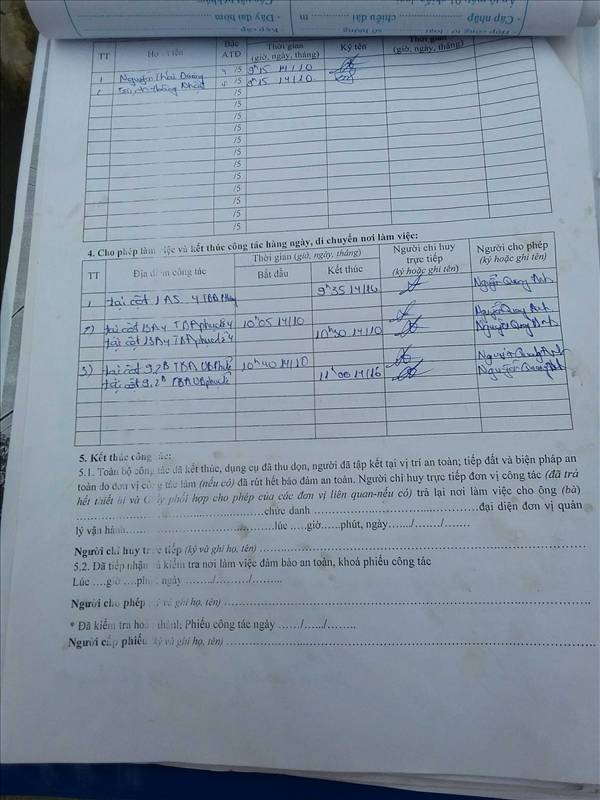 TT Họ tên Bậc ATĐ Thời gian (giờ, ngày, tháng) Ký tên Thời gian (giờ, ngày, tháng)
1 Nguyễn Thái Dương 4 /5 9h15 14/10
2 4 /5 9h15 14/10
/5
/5
/5
/5
/5
/5
/5
/5
/5
/5
/5
/5
4. Cho phép làm việc và kết thúc công tác hàng ngày, di chuyển nơi làm việc:
TT Địa điểm công tác Thời gian (giờ, ngày, tháng) Người chỉ huy trực tiếp (ký hoặc ghi tên) Người cho phép (ký hoặc ghi tên)
Bắt đầu Kết thúc
1 tại cột 1 9h35 14/10 Nguyễn Quang Anh
2) tại cột 13A4 TBA 10h05 14/10 Nguyễn Quang Anh
tại cột 13A4 TBA 10h30 14/10 Nguyễn Quang Anh
3) tại cột 9.2B TBA 10h40 14/10 Nguyễn Quang Anh
tại cột 9.2B TBA 11h00 14/10 Nguyễn Quang Anh
5. Kết thúc công tác:
5.1. Toàn bộ công tác đã kết thúc, dụng cụ đã thu dọn, người đã tập kết tại vị trí an toàn; tiếp đất và biện pháp an
toàn do đơn vị công tác làm (nếu có) đã rút hết bảo đảm an toàn. Người chỉ huy trực tiếp đơn vị công tác (đã trả
hết thiết bị và Giấy phối hợp cho phép của các đơn vị liên quan-nếu có) trả lại nơi làm việc cho ông (bà)
........chức danh ........đại diện đơn vị quản
lý vận hành........lúc ....giờ......phút, ngày......./......../........
Người chỉ huy trực tiếp (ký và ghi họ, tên) ........
5.2. Đã tiếp nhận và kiểm tra nơi làm việc đảm bảo an toàn, khoá phiếu công tác
Lúc ....giờ ....phút, ngày ......../........./.........
Người cho phép (ký và ghi họ, tên) ........
* Đã kiểm tra hoàn thành Phiếu công tác ngày ....../....../........
Người cấp phiếu (ký và ghi họ, tên) ........